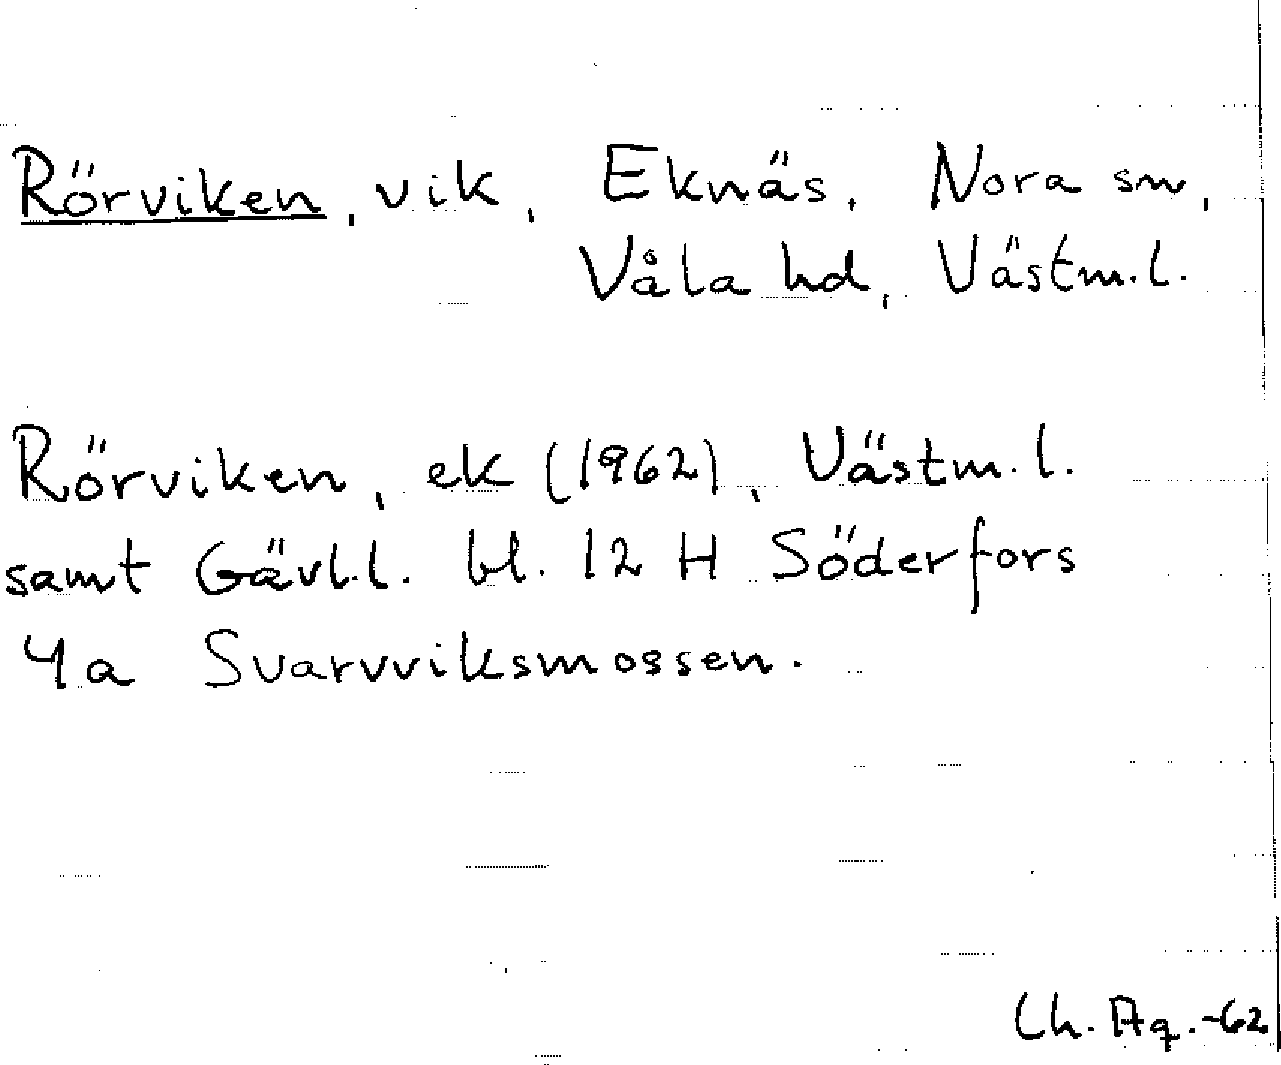 Rörviken, vik, Eknäs, Nora sn,
Våla hd, Västm.l.
Rörviken, ek (1962), Västm.l.
samt Gävl.l. bl. 12 H Söderfors
4a Svarvviksmossen.
Ch. Aq.-62